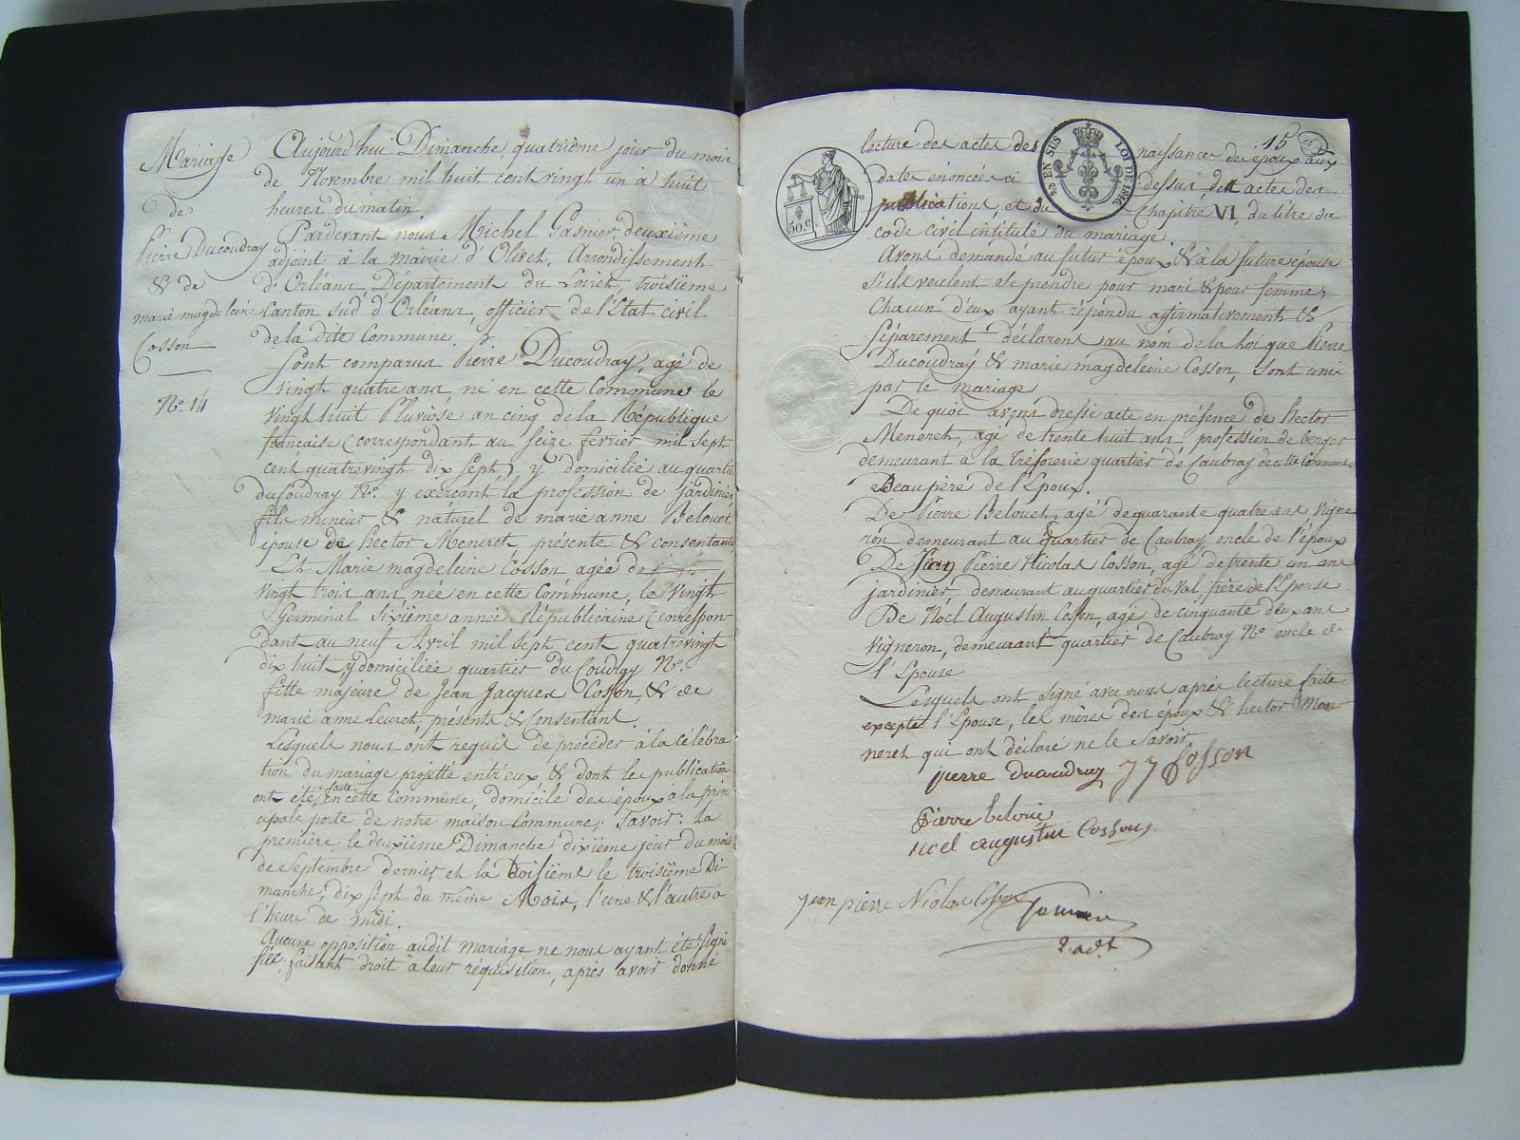 Mariage
de
Pierre Ducoudray
& de
marie magdeleine
Cosson
No. 14
Aujourd'hui Dimanche, quatrième jour du mois
de Novembre mil huit cent vingt un à huit
heures du matin.
Pardevant nous Michel Gasnier deuxième
adjoint à la mairie d'Olivet, Arrondissement
d'Orléans, Département du Loiret, troisième
Canton sud d'Orléans, officier de l'Etat civil
de la dite Commune.
Sont comparus Pierre Ducoudray, agé de
vingt quatre ans, né en cette Commune le
vingt huit Pluviose an cinq de la République
francaise (correspondant au seize février mil sept
cent quatrevingt dix sept) y domicilié au quartier
du Coudray No. y exercant la profession de jardinier
fils mineur & naturel de marie anne Belouet
épouse de hector Meneret, présente & consentante
Et Marie magdeleine Cosson agée de
vingt trois ans née en cette Commune, le vingt
Germinal sixième année Républicaine (correspon
dant au neuf Avril mil sept cent quatrevingt
dix huit, y domiciliée quartier du Coudray No.
fille majeure de Jean Jacques Cosson, & de
marie anne Leuret, présents & Consentant.
Lesquels nous ont requis de procéder à la célébra
tion du mariage projetté entr'eux, & dont les publications
ont été faite en cette Commune, domicile des époux a la prin
cipale porte de notre maison Commune, Savoir: la
première, le deuxième Dimanche dixième jour du mois
de Septembre dernier et la troisième le troisième Di
manche, dix sept du même Mois, l'une & l'autre à
l'heure de midi.
Aucune opposition audit mariage ne nous ayant été signi
fiée, faisant droit à leur réquisition, après avoir donné
15
lecture des actes des naissances des époux aux
dates énoncées ci dessus, des actes des
publications, et du Chapitre VI, du titre du
code civil intitulé du mariage.
50 c.
25 EN SUS
LOI DE 1816
Avons demandé au futur époux, & à la future épouse
s'ils veulent se prendre pour mari & pour femme;
Chacun d'eux ayant répondu affirmativement &
séparement, déclarons au nom de la loi que Pierre
Ducoudray & marie magdeleine Cosson, sont unis
par le mariage
De quoi avons dressé acte en présence de hector
Meneret, agé de trente huit ans profession de berger
demeurant à la trésorerie quartier de Caubray de cette Commune
Beaupère de l'Epoux.
De Pierre Belouet, agé de quarante quatre ans Vigne
ron demeurant au quartier de Caubray oncle de l'époux
De Jean Pierre Nicolas Cosson, agé de trente un ans
jardinier, demeurant au quartier du Val frère de l'Epouse
De Noël Augustin Cosson, agé de cinquante deux ans
Vigneron, demeurant quartier de Caubray No oncle de
l'Epouse
Lesquels ont signé avec nous après lecture faite
excepté l'Epouse, les mères des époux & hector Mon
neret qui ont déclaré ne le savoir,
pierre ducoudray JJ Cosson
Pierre beloue
noel augustin Cosson
jean pierre Nicolas Cosson Gasnier
2. adt